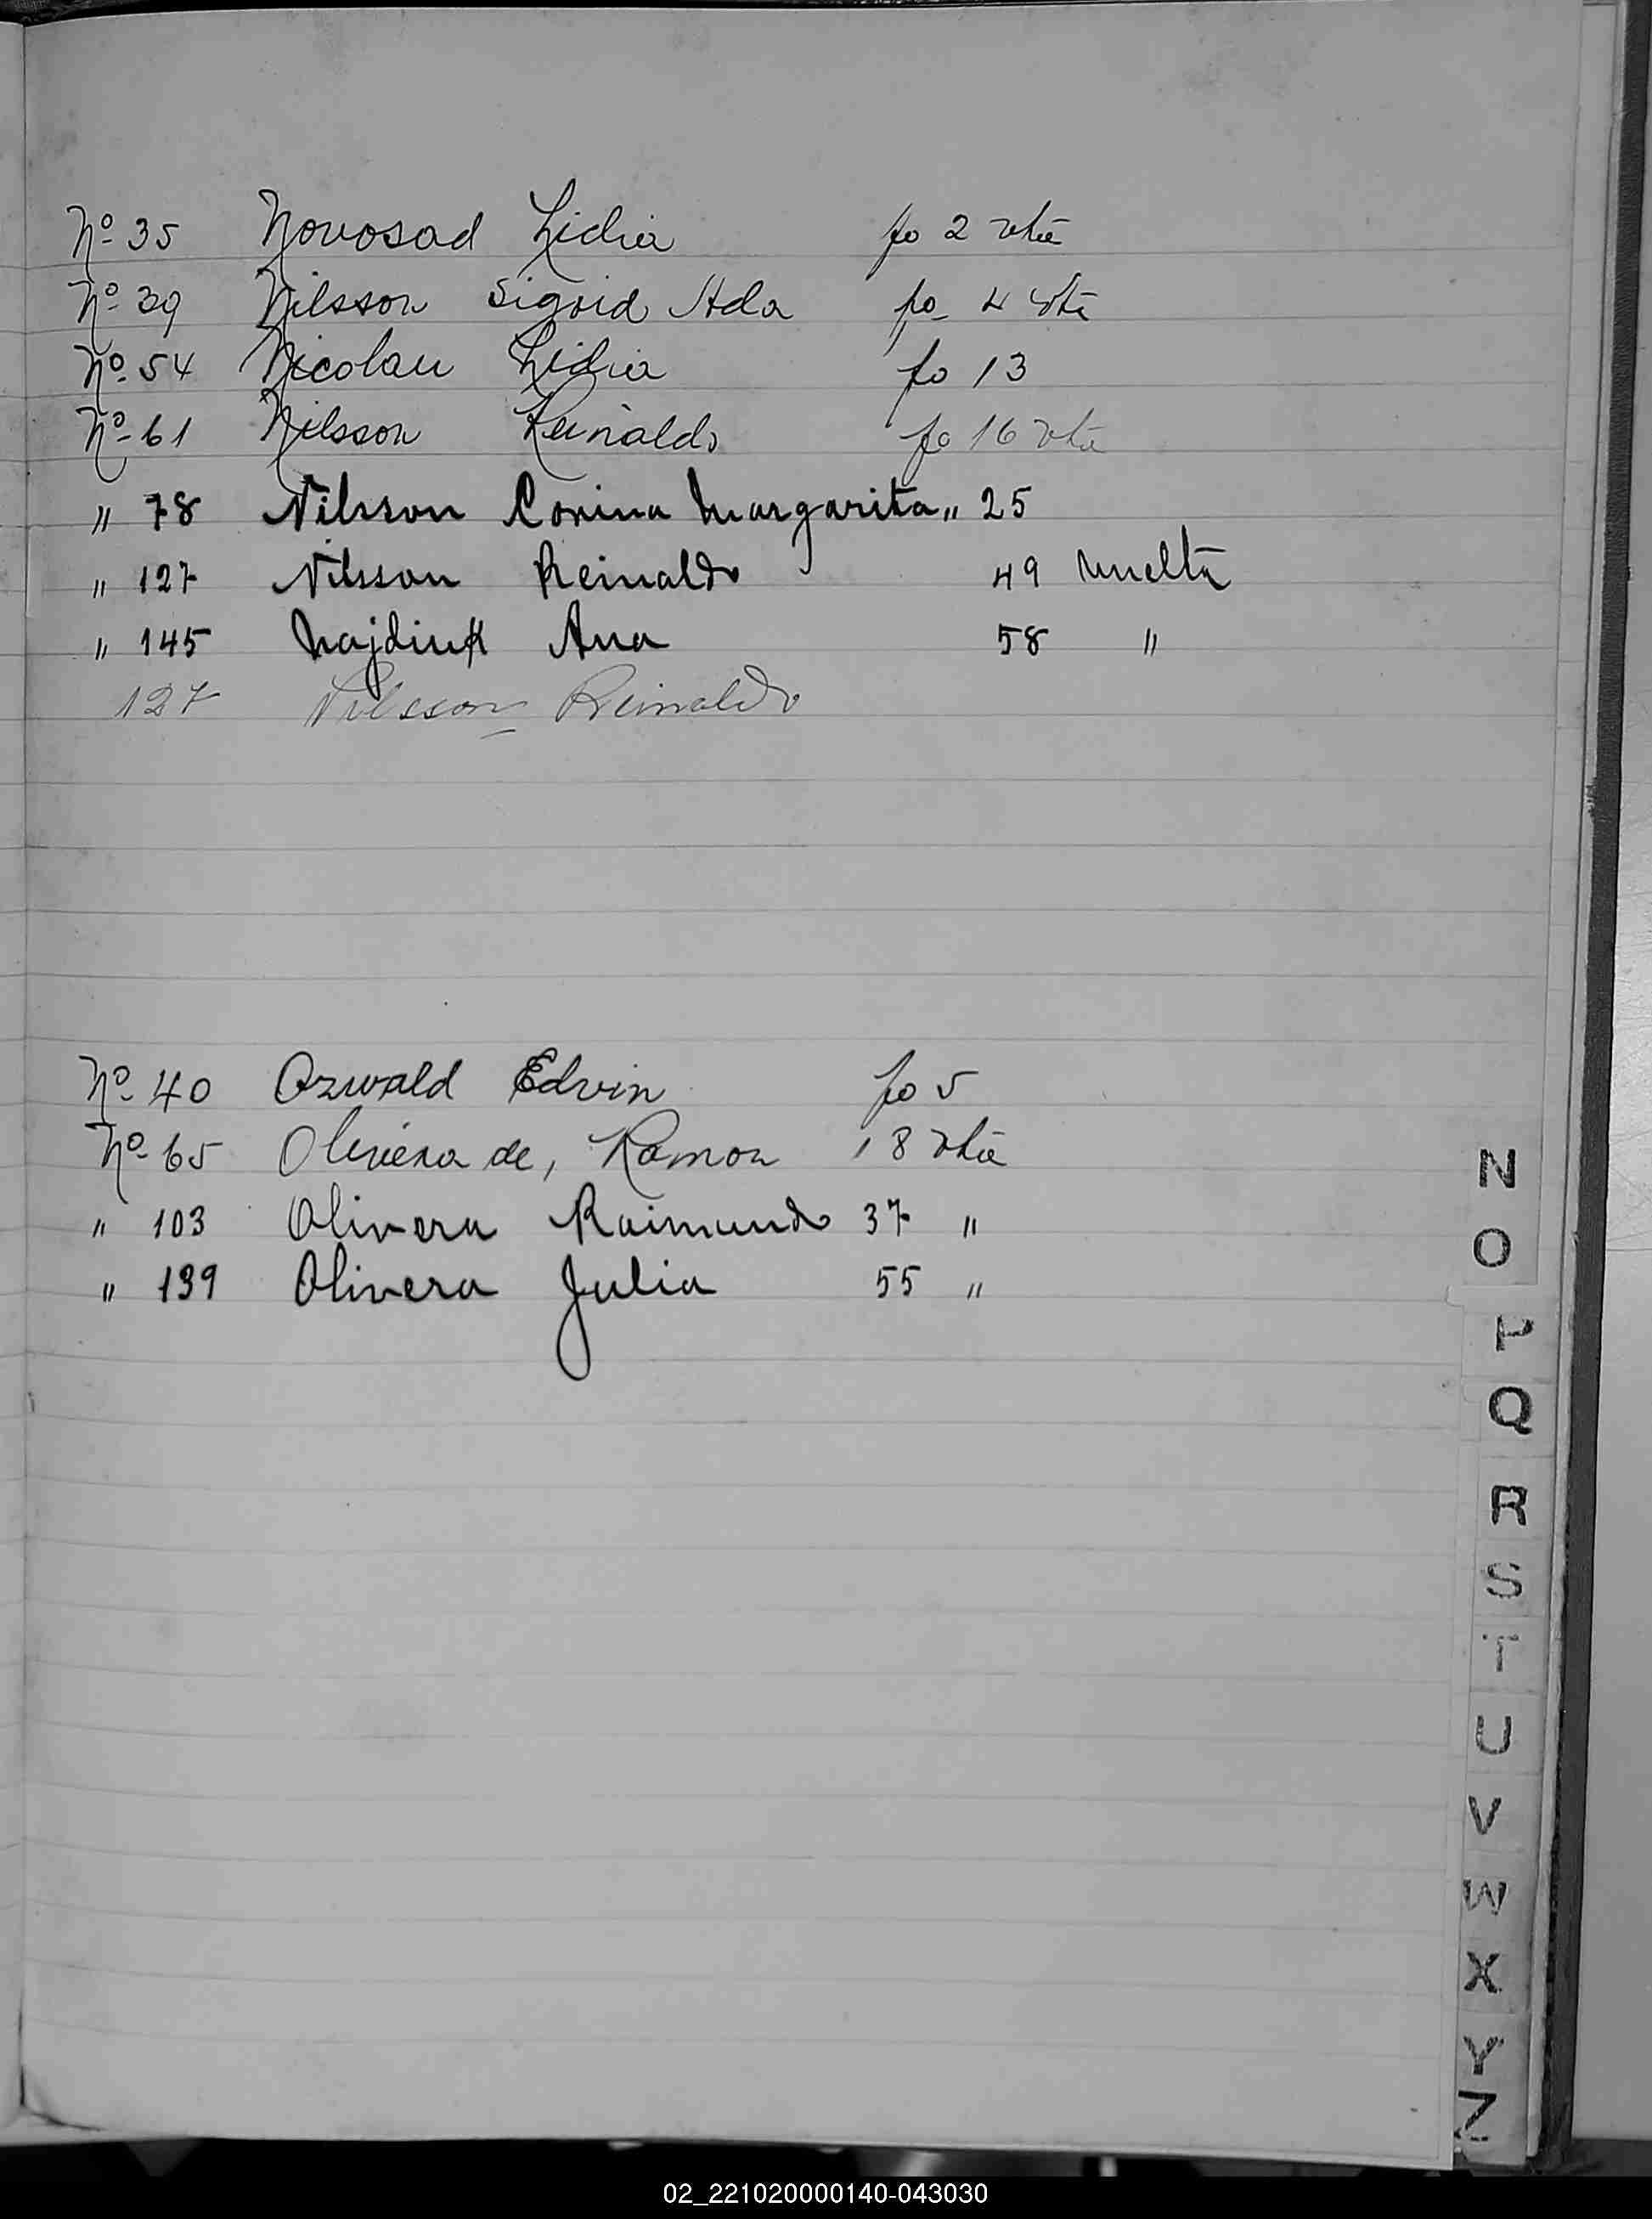 Nº 35 Novosad Lidia fo 2 vta
Nº 39 Nilsson Sigrid Ada fo 4 vta
Nº 54 Nicolau Lidia fo 13
Nº 61 Nilsson Reinaldo fo 16 vta
" 78 Nilsson Corina Margarita " 25
" 127 Nilsson Reinaldo 49 vuelta
" 145 Najdiuk Ana 58 "
127 Nilsson Reinaldo
Nº 40 Ozwald Edvin fo 5
Nº 65 Oliveira de, Ramon 18 vta
" 103 Olivera Raimundo 37 "
" 139 Olivera Julia 55 "
N
O
P
Q
R
S
T
U
V
W
X
Y
Z
02_221020000140-043030